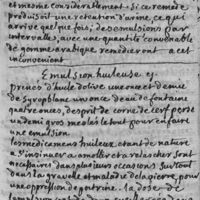 et mesme considerablement. Si ce remede
produisoit une retention d'urine, ce qui
arrive quelque fois, des emulsions par
intervalles, avec une quantité convenable
de gomme arabique remedieront a cet
inconvenient
Emulsion huileuse
prenés d'huile d'olive une once et demie
de Syrop blanc un once d'eau de fontaine
quatre onces, d'esprit de corne de cerf
un demi gros meslés le tout pour en faire
une emulsion.
les medicamens huileux, etant de nature
a s'insinuer a amollir et a relacher sont
necessaires dans plusieurs occasions, surtout
dans la gravelle et maladie de la pierre, pour
une oppression de poitrine. la dose de